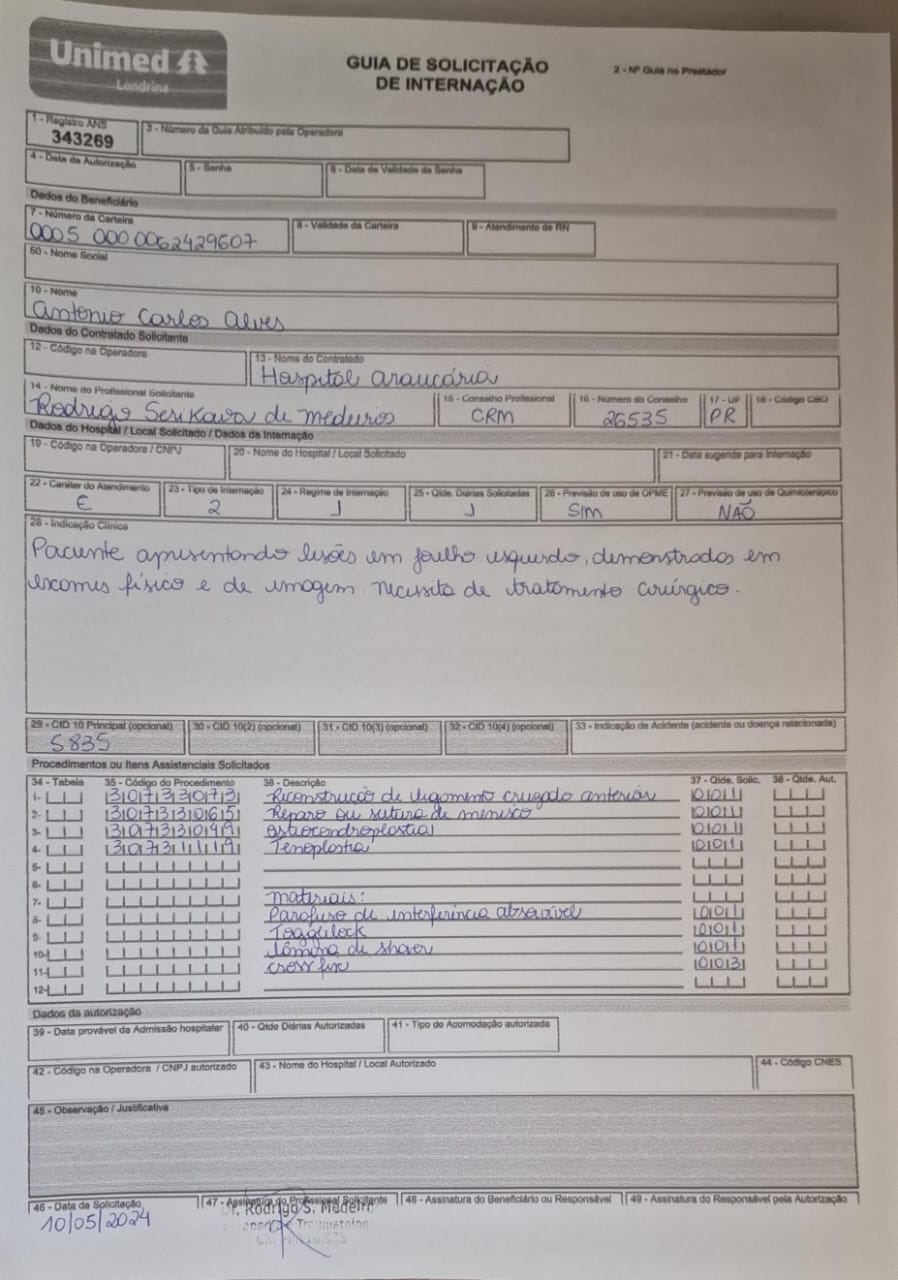 Unimed
Londrina
GUIA DE SOLICITAÇÃO
DE INTERNAÇÃO
2 - Nº Guia no Prestador
1 - Registro ANS
343269
3 - Número da Guia Atribuído pela Operadora
4 - Data da Autorização
5 - Senha
6 - Data de Validade da Senha
Dados do Beneficiário
7 - Número da Carteira
0005 0000062429607
8 - Validade da Carteira
9 - Atendimento de RN
50 - Nome Social
10 - Nome
Antonio Carlos Alves
Dados do Contratado Solicitante
12 - Código na Operadora
13 - Nome do Contratado
Hospital Araucária
14 - Nome do Profissional Solicitante
Rodrigo Serikava de Medeiros
15 - Conselho Profissional
CRM
16 - Número do Conselho
26535
17 - UF
PR
18 - Código CBO
Dados do Hospital / Local Solicitado / Dados da Internação
19 - Código na Operadora / CNPJ
20 - Nome do Hospital / Local Solicitado
21 - Data sugerida para Internação
22 - Caráter do Atendimento
E
23 - Tipo de Internação
2
24 - Regime de Internação
1
25 - Qtde. Diárias Solicitadas
1
26 - Previsão de uso de OPME
SIM
27 - Previsão de uso de Quimioterápico
NÃO
28 - Indicação Clínica
Paciente apresentando lesões em joelho esquerdo, demonstrados em
exames físico e de imagem necessita de tratamento cirúrgico.
29 - CID 10 Principal (opcional)
S835
30 - CID 10(2) (opcional)
31 - CID 10(3) (opcional)
32 - CID 10(4) (opcional)
33 - Indicação de Acidente (acidente ou doença relacionada)
Procedimentos ou Itens Assistenciais Solicitados
34 - Tabela 35 - Código do Procedimento 36 - Descrição 37 - Qtde. Solic. 38 - Qtde. Aut.
1- 30733073 Reconstrução de ligamento cruzado anterior 001
2- 30733065 Reparo ou sutura de menisco 001
3- 30733049 osteocondroplastia 001
4- 30731119 Tenoplastia 001
5-
6-
7- materiais:
8- Parafuso de interferência absorvível 001
9- Togglelock 001
10- lâmina de shaver 001
11- crossfix 003
12-
Dados da autorização
39 - Data provável da Admissão hospitalar
40 - Qtde Diárias Autorizadas
41 - Tipo de Acomodação autorizada
42 - Código na Operadora / CNPJ autorizado
43 - Nome do Hospital / Local Autorizado
44 - Código CNES
45 - Observação / Justificativa
46 - Data da Solicitação
10/05/2024
47 - Assinatura do Profissional Solicitante
Rodrigo S. Medeir
48 - Assinatura do Beneficiário ou Responsável
49 - Assinatura do Responsável pela Autorização